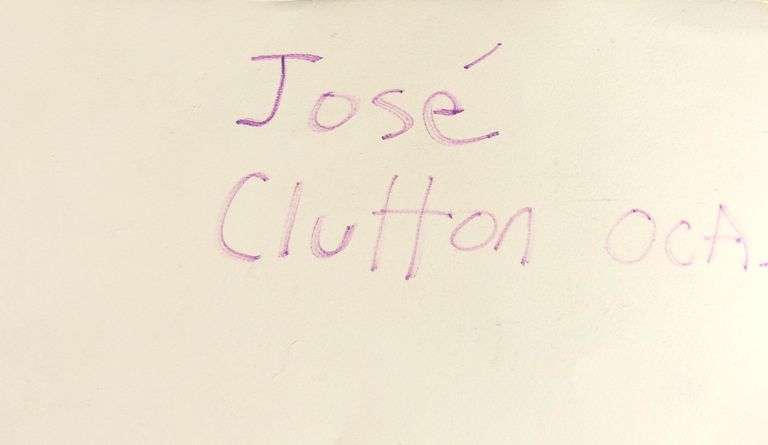 José
Clutton OCA